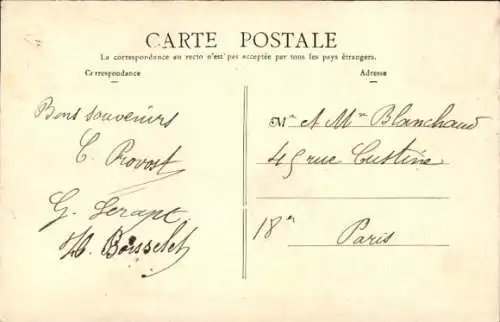 CARTE POSTALE
La correspondance au recto n'est pas acceptée par tous les pays étrangers.
Correspondance
Adresse
Bons souvenirs
C. Provost
G.
H. Boisselet
Mr et Mme Blanchaud
45 rue Custine
18e
Paris